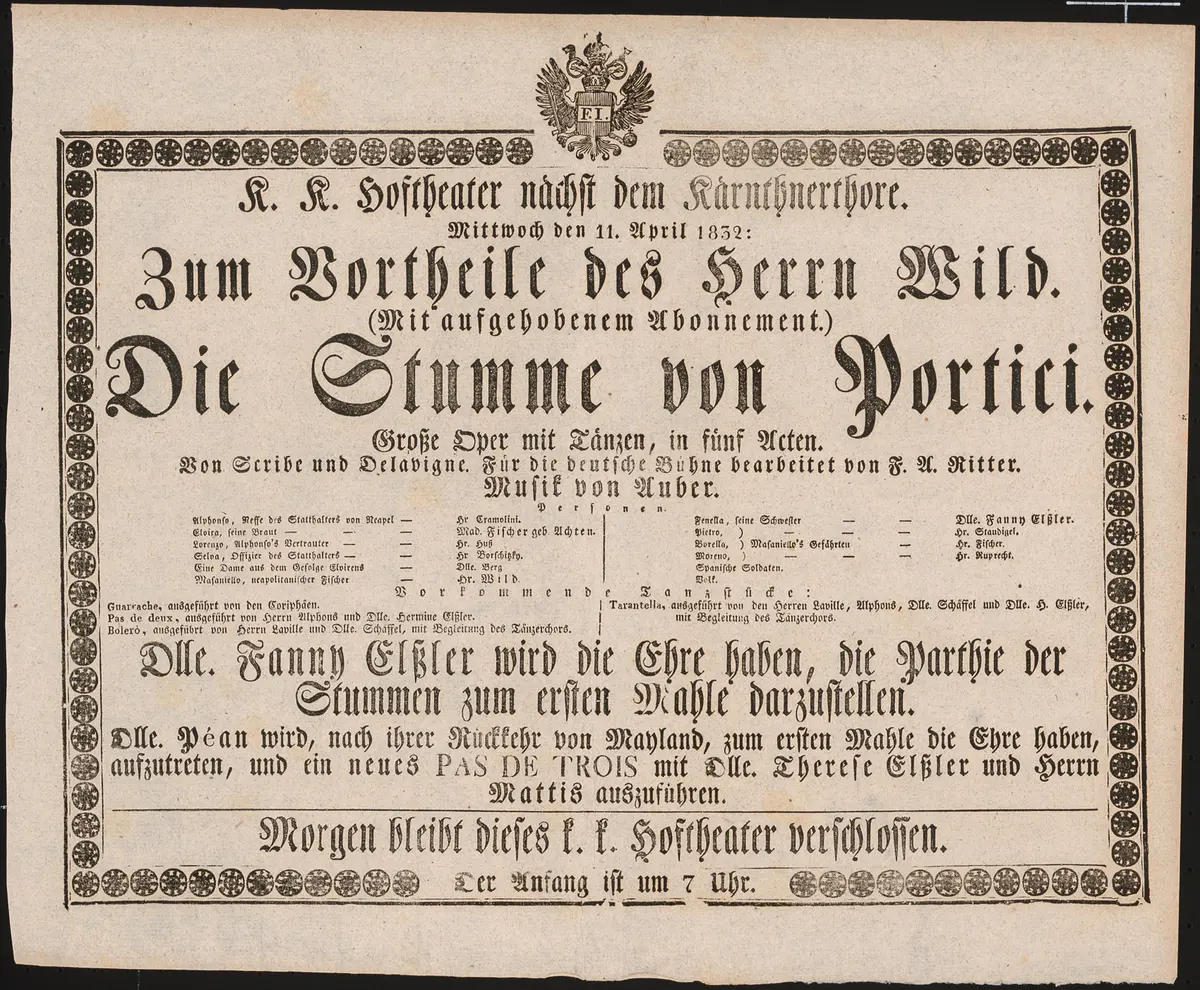 F.I.
K. K. Hoftheater nächst dem Kärnthnerthore.
Mittwoch den 11. April 1832:
Zum Vortheile des Herrn Wild.
(Mit aufgehobenem Abonnement.)
Die Stumme von Portici.
Große Oper mit Tänzen, in fünf Acten.
Von Scribe und Delavigne. Für die deutsche Bühne bearbeitet von F. A. Ritter.
Musik von Auber.
Personen.
Alphonso, Neffe des Statthalters von Neapel — Hr Cramolini.
Elvira, seine Braut — — Mad. Fischer geb Achten.
Lorenzo, Alphonso's Vertrauter — — Hr. Huß
Selva, Offizier des Statthalters — — Hr Borschitzky.
Eine Dame aus dem Gefolge Elvirens — Dlle. Berg
Masaniello, neapolitanischer Fischer — Hr. Wild.
Fenella, seine Schwester — — Dlle. Fanny Elßler.
Pietro, ) — — — Hr. Staudigel.
Borella, ) Masaniello's Gefährten — — Hr. Fischer.
Moreno, ) — — — Hr. Ruprecht.
Spanische Soldaten.
Volk.
Vorkommende Tanzstücke:
Guarrache, ausgeführt von den Coriphäen.
Pas de deux, ausgeführt von Herrn Alphons und Dlle. Hermine Elßler.
Bolerò, ausgeführt von Herrn Laville und Dlle. Schäffel, mit Begleitung des Tänzerchors.
Tarantella, ausgeführt von den Herren Laville, Alphons, Dlle. Schäffel und Dlle. H. Elßler,
mit Begleitung des Tänzerchors.
Dlle. Fanny Elßler wird die Ehre haben, die Parthie der
Stummen zum ersten Mahle darzustellen.
Dlle. Péan wird, nach ihrer Rückkehr von Mayland, zum ersten Mahle die Ehre haben,
aufzutreten, und ein neues PAS DE TROIS mit Dlle. Therese Elßler und Herrn
Mattis auszuführen.
Morgen bleibt dieses k. k. Hoftheater verschlossen.
Der Anfang ist um 7 Uhr.